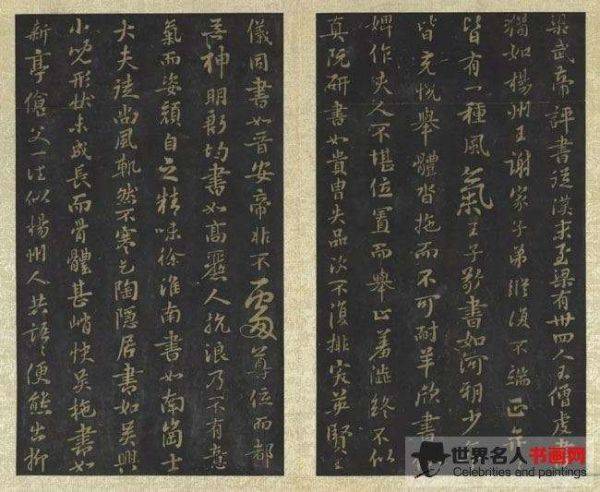 梁武帝評書從漢末至梁有卅四人王僧虔書
猶如楊州王謝家子弟縱復不端正奕
皆有一種風氣王子敬書如河朔少年
皆充悅舉體沓拖而不可耐羊欣書
婢作夫人不堪位置而舉止羞澁終不似
真阮研書如貴胄失品次不復排突英賢王
儀同書如晉安帝非不處尊位而都
無神明殷均書如高麗人抗浪乃不有意
氣而姿顏自乏精味徐淮南書如南崗士
大夫徒尚風軌然不寒乞陶隱居書如吳興
小兒形狀未成長而骨體甚峭快吳施書如
新亭傖父一往似楊州人共語〻便態出柳
世界名人书画网
Celebrities and paintings